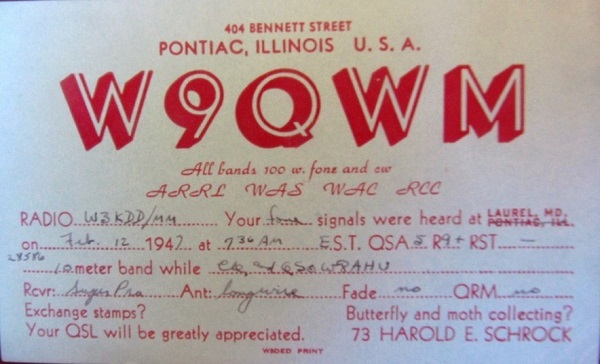 404 BENNETT STREET
PONTIAC, ILLINOIS U. S. A.
W9QWM
All bands 100 w. fone and cw
ARRL WAS WAC RCC
RADIO W3KDD/MM Your fone signals were heard at LAUREL, MD. PONTIAC, ILL.
on Feb. 12 1947 at 7:36 AM E.S.T. QSA 5 R9+ RST —
28586
10 meter band while CQ, & QSO W8AHU
Rcvr: Super Pro Ant: longwire Fade no QRM no
Exchange stamps? Butterfly and moth collecting?
Your QSL will be greatly appreciated. 73 HAROLD E. SCHROCK
W8DED PRINT